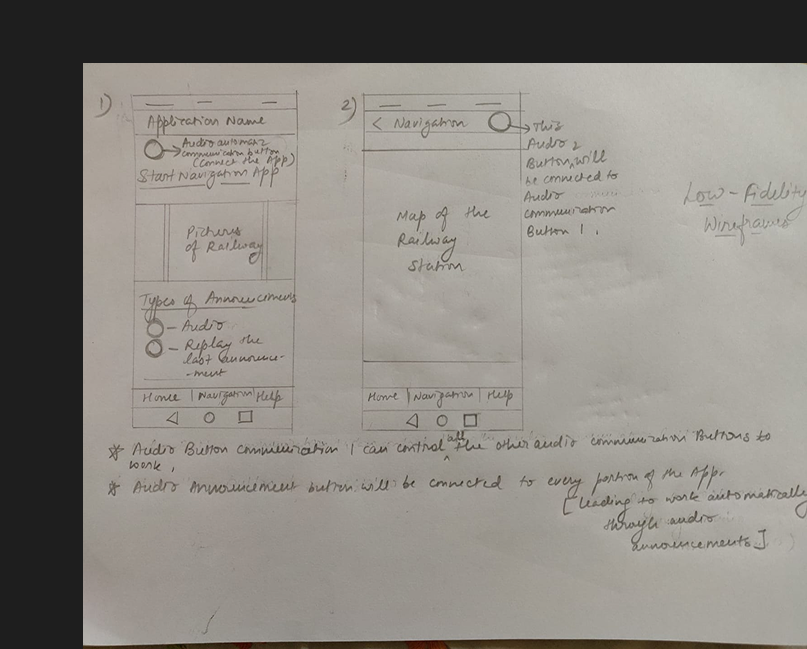 1)
Application Name
Audio automatic
communication button
(Connect the App)
Start Navigation App
Pictures
of Railway
Types of Announcements
- Audio
- Replay the
last announce-
-ment
Home | Navigation | Help
2)
< Navigation
This
Audio 2
Button, will
be connected to
Audio
communication
Button 1.
Map of the
Railway
Station
Home | Navigation | Help
Low-Fidelity
Wireframes
* Audio Button communication 1 can control all the other audio communication Buttons to
work,
* Audio Announcement button will be connected to every portion of the App.
[leading to work automatically
through audio
announcements]